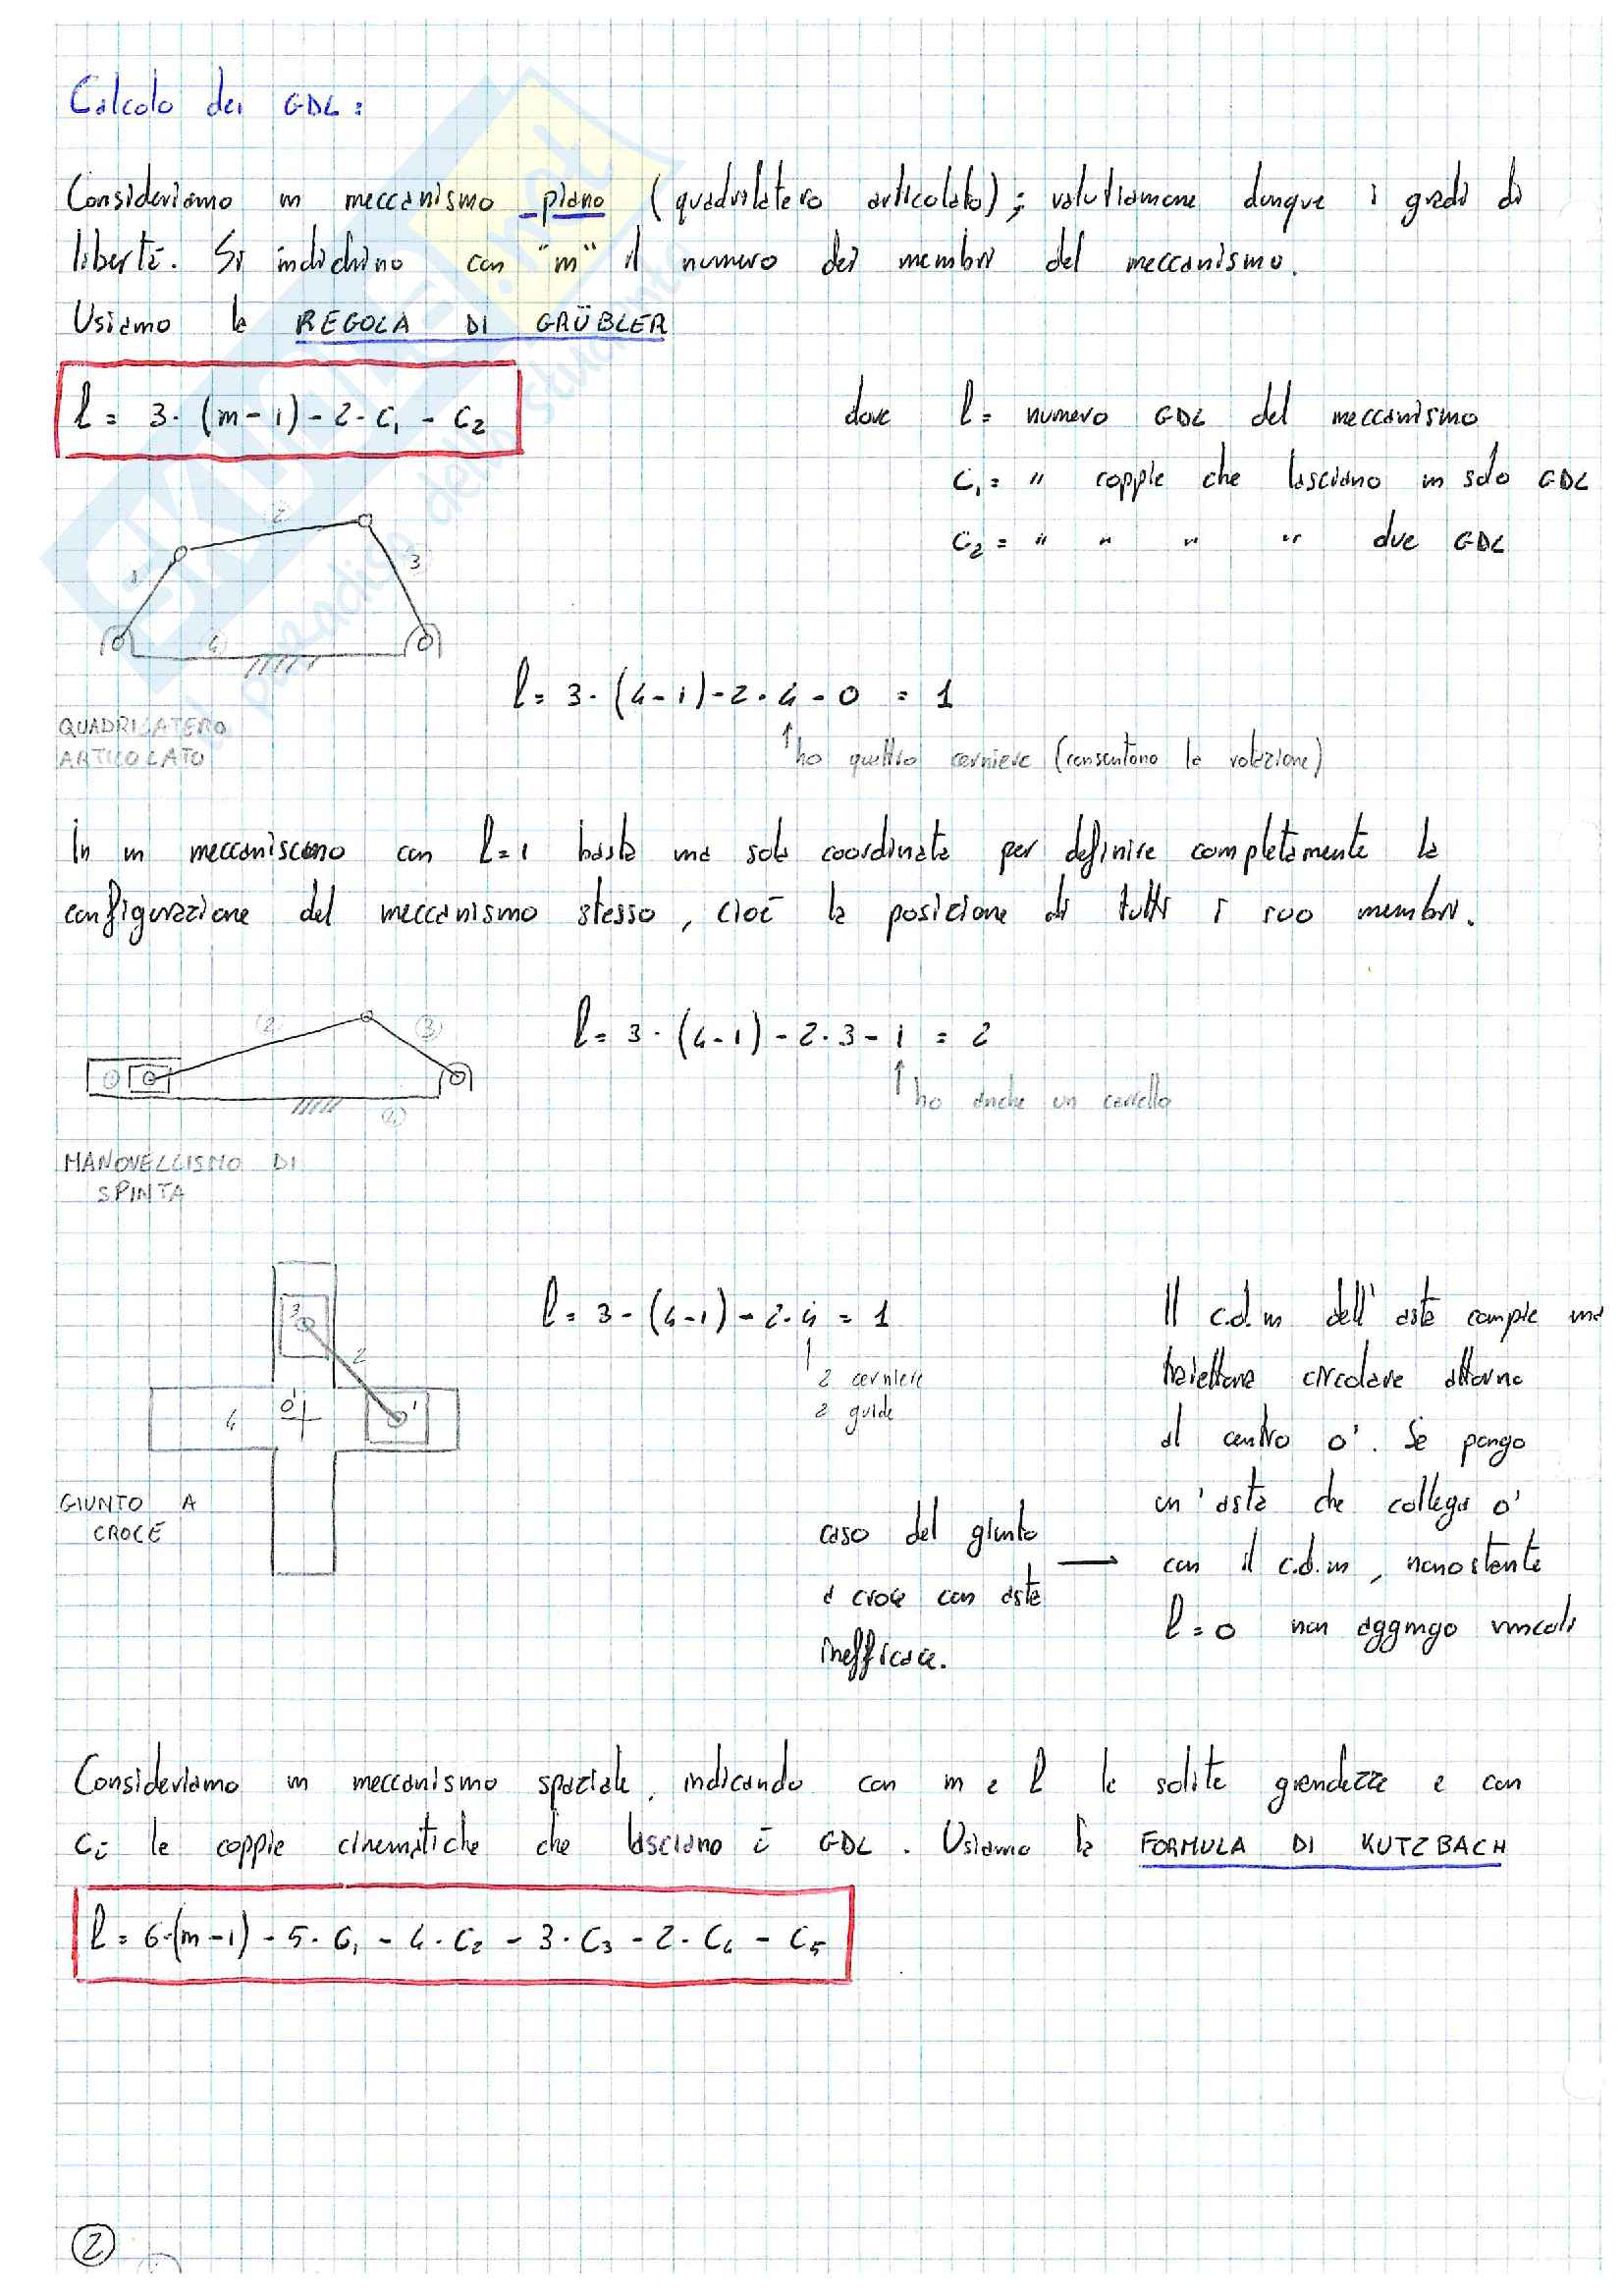 Calcolo dei GDL:
Consideriamo un meccanismo piano (quadrilatero articolato); valutiamone dunque i gradi di
libertà. Si indichino con "m" il numero dei membri del meccanismo.
Usiamo la REGOLA DI GRÜBLER
l = 3·(m-1)-2·C₁ - C₂
dove l = numero GDL del meccanismo
C₁ = " coppie che lasciano un solo GDL
C₂ = " " " " due GDL
1 2 3 4
QUADRILATERO
ARTICOLATO
l = 3·(4-1)-2·4-0 = 1
↑ ho quattro cerniere (consentono la rotazione)
In un meccaniscmo con l=1 basta una sola coordinata per definire completamente la
configurazione del meccanismo stesso, cioè la posizione di tutti i suo membri.
1 2 3 4
l = 3·(4-1)-2·3-1 = 2
↑ ho anche un carrello
MANOVELLISMO DI
SPINTA
3 2 1 4 O'
l = 3-(4-1)-2·4 = 1
2 cerniere
2 guide
GIUNTO A
CROCE
caso del giunto
a croce con asta
inefficace.
→
Il c.d.m dell'asta compie una
traiettoria circolare attorno
al centro O'. Se pongo
un'asta che collega O'
con il c.d.m, nonostante
l=0 non aggiungo vincoli
Consideriamo un meccanismo spaziale, indicando con m e l le solite grandezze e con
Ci le coppie cinematiche che lasciano i GDL. Usiamo la FORMULA DI KUTZBACH
l = 6·(m-1) - 5·C₁ - 4·C₂ - 3·C₃ - 2·C₄ - C₅
2